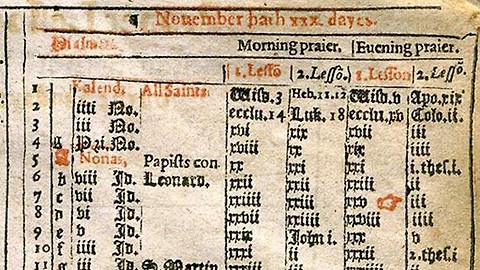 Nouember hath xxx. dayes.
Psalmes. Morning praier. Euening praier.
1. Lessō 2. Lessō. 1. Lesson 2. Lessō.
1 Kalend. All Saints. Wisd. 3 Heb. 11.12 Wisd. v Apo. xix
2 iiii No. ecclu. 14 Luk. 18 ecclu. xv Colo. ii.
3 iii No. xvi xix xvii iii
4 Pri. No. xviii xx xix iiii
5 A Nonas, Papists con xxi xxii i. thes. i.
6 b viii Id. Leonard. xxii xxii xxiii ii
7 c vii Id. xxiiii xxiii xxv iii
8 d vi Id. xxvii xxiiii xxviii iiii
9 e v Id. xxix John i. xxx v
10 f iiii Id. xxxi ii xxxii 2. thes. i
11 g iii Id. S. Martin iii ii